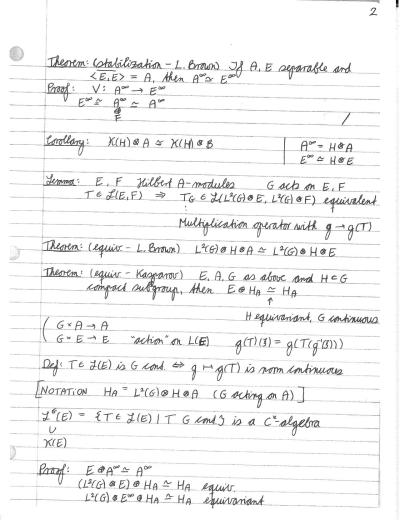 2
Theorem: (stabilization - L. Brown) If A, E separable and
<E,E> = A, then A^∞ ≃ E^∞
Proof: V: A^∞ → E^∞
E^∞ ≃ A^∞ ≃ A^∞
⊕
E
Corollary: K(H)⊗A ≃ K(H)⊗B
A^∞ = H⊗A
E^∞ ≃ H⊗E
Lemma: E, F Hilbert A-modules G acts on E, F
T ∈ L(E,F) ⇒ T_G ∈ L(L²(G)⊗E, L²(G)⊗F) equivalent
Multiplication operator with g → g(T)
Theorem: (equiv - L. Brown) L²(G)⊗H⊗A ≃ L²(G)⊗H⊗E
Theorem: (equiv - Kasparov) E, A, G as above and H ⊂ G
compact subgroup, then E ⊕ H_A ≃ H_A
↑
H equivariant, G continuous
( G × A → A
G × E → E "action" on L(E) g(T)(ξ) = g(T(g⁻¹(ξ)))
Def: T ∈ L(E) is G cont. ⇔ g ↦ g(T) is norm continuous
[NOTATION H_A = L²(G)⊗H⊗A (G acting on A)]
L^G(E) = {T ∈ L(E) | T G cont} is a C*-algebra
∪
K(E)
Proof: E ⊕ A^∞ ≃ A^∞
(L²(G)⊗E) ⊕ H_A ≃ H_A equiv.
L²(G)⊗E^∞ ⊕ H_A ≃ H_A equivariant